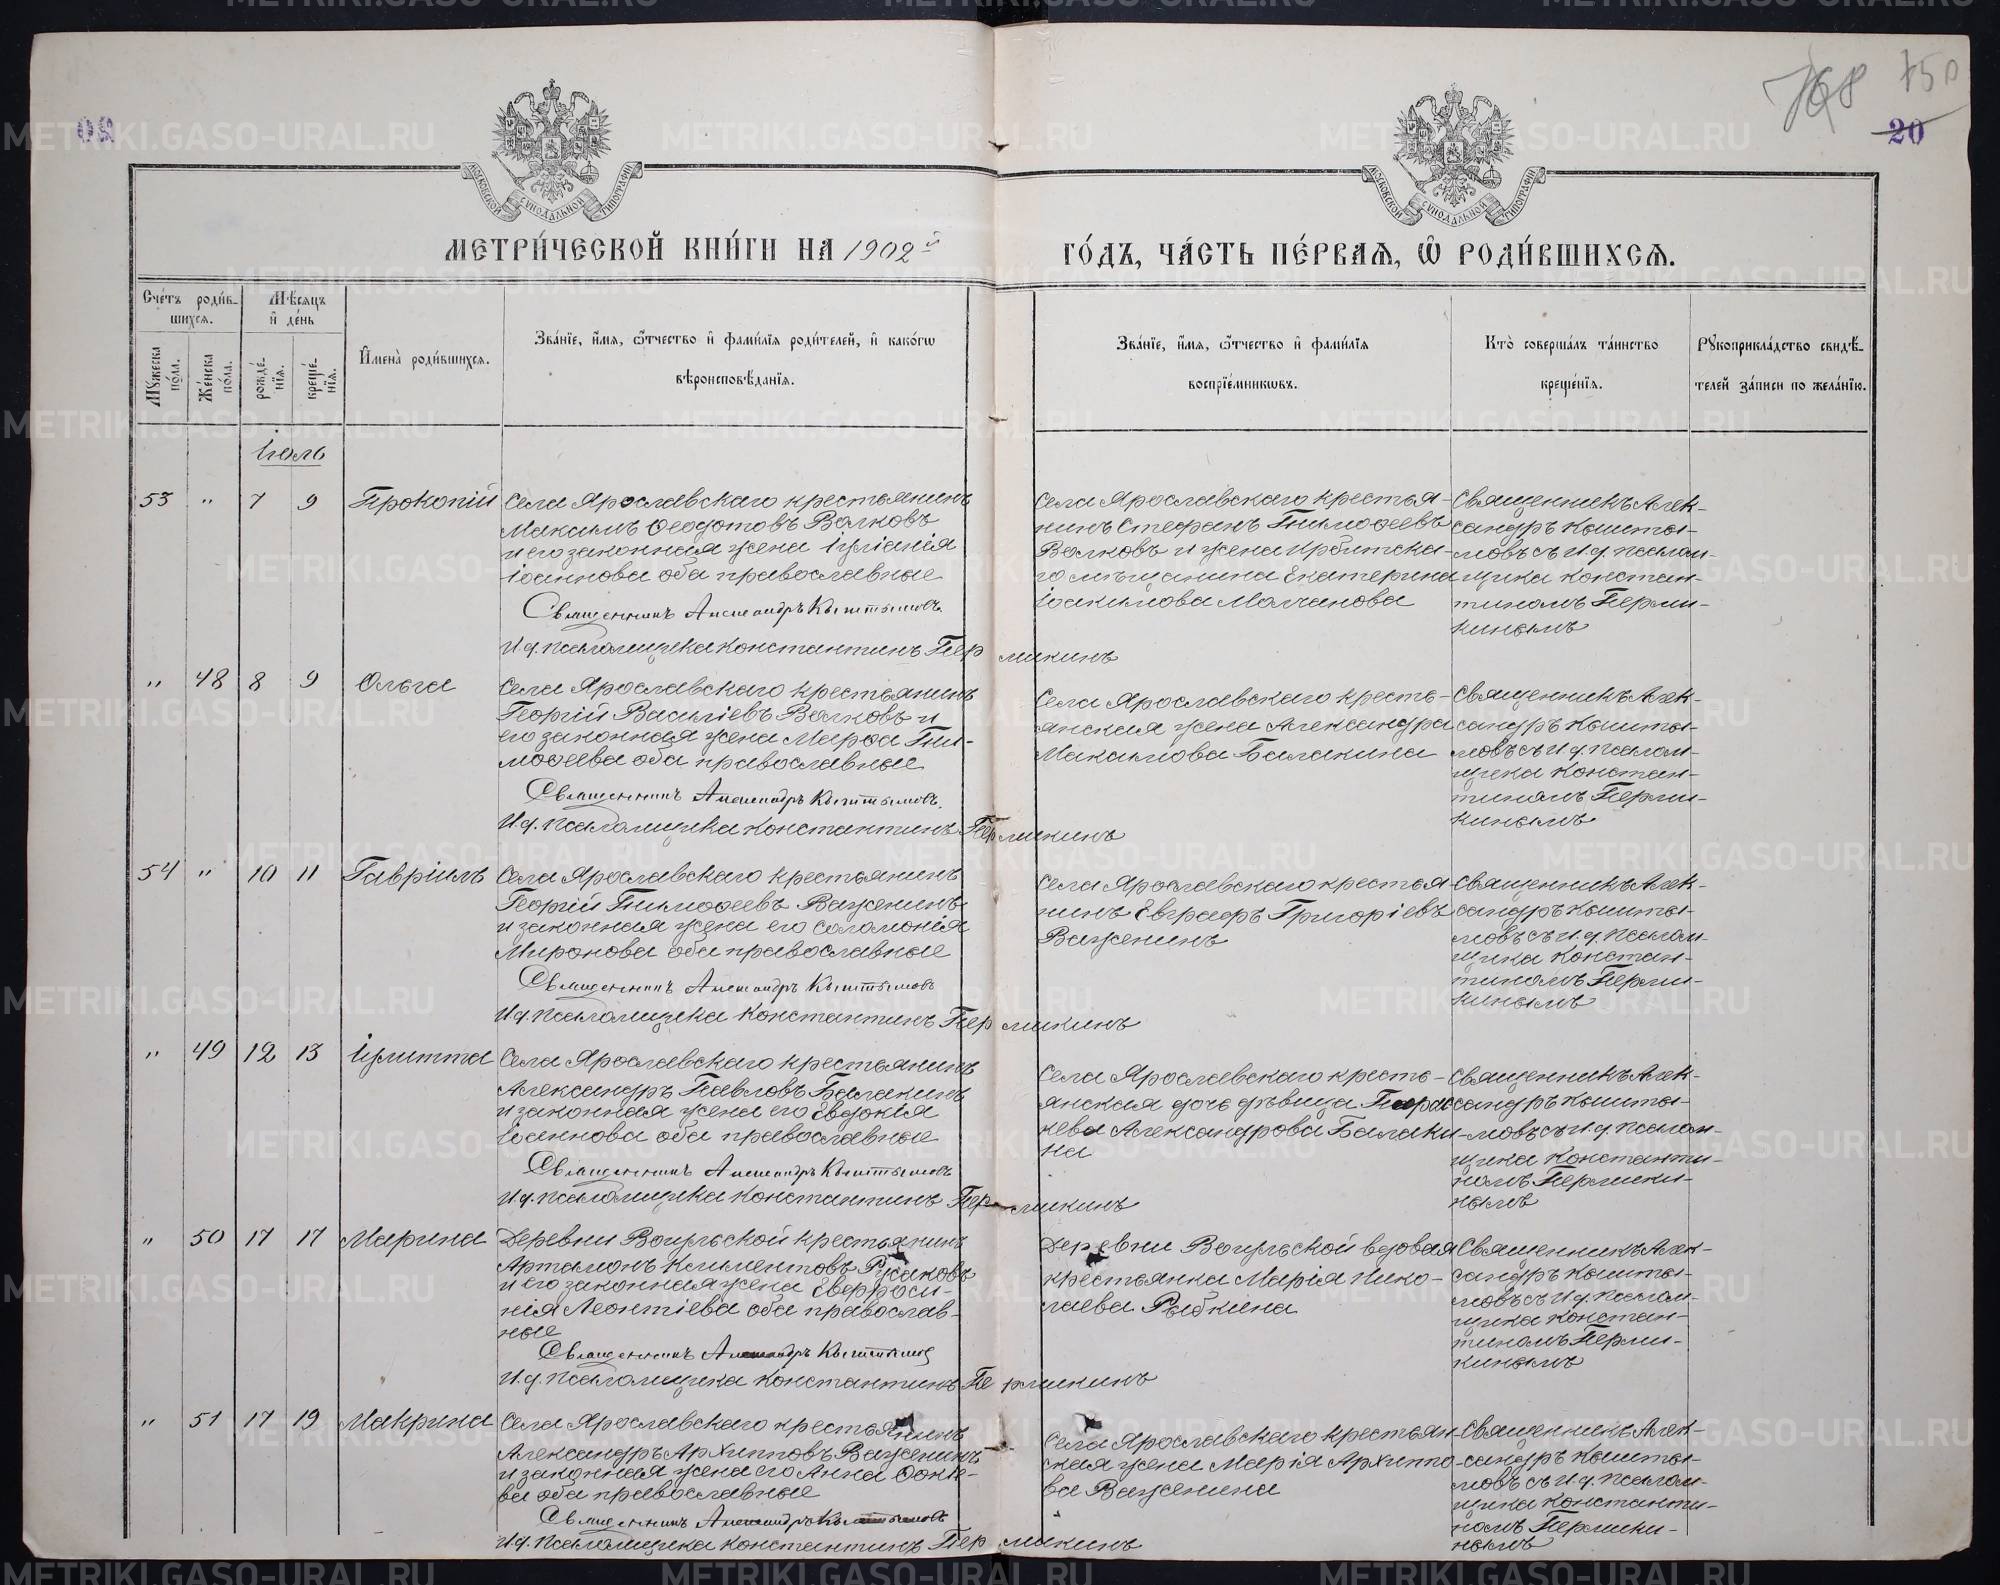 768 75
20
МЕТРИ́ЧЕСКОЙ КНИ́ГИ НА 1902й
ГО́ДЪ, ЧА́СТЬ ПЕ́РВАѦ, Ѿ РОДИ́ВШИХСѦ.
Сче́тъ роди́в-
шихся.
Мѣ́сяцъ
и́ де́нь
Му́жеска по́ла.
Же́нска по́ла.
рожде́-
нїя.
креще́-
нїя.
И҆мена̀ роди́вшихся.
Зва́нїе, и҆́мя, ѻ҆́тчество и҆ фами́лїя роди́телей, и҆ како́гѡ
вѣроисповѣ́данїя.
Зва́нїе, и҆́мя, ѻ҆́тчество и҆ фами́лїя
воспрїе́мникѡвъ.
Кто̀ соверша́лъ та́инство
креще́нїя.
Рукоприкла́дство свидѣ́-
телей за́писи по жела́нїю.
Іюль
53 " 7 9 Прокопій
Села Ярославскаго крестьянинъ
Максимъ Ѳеодотовъ Волковъ
и его законная жена Іуліанія
Іоаннова оба православные
Священникъ Александръ Кыштымовъ
И.д. псаломщика Константинъ Пермикинъ
Села Ярославскаго крестья-
нинъ Стефанъ Тимоѳеевъ
Волковъ и жена Ирбитска-
го мѣщанина Екатерина
Іоакимова Молчанова
Священникъ Алек-
сандръ Кышты-
мовъ съ И.д. псалом-
щика Констан-
тиномъ Перми-
кинымъ
" 48 8 9 Ольга
Села Ярославскаго крестьянинъ
Георгій Василіевъ Волковъ и
его законная жена Марѳа Ти-
моѳеева оба православные
Священникъ Александръ Кыштымовъ.
И.д. псаломщика Константинъ Пермикинъ
Села Ярославскаго кресть-
янская жена Александра
Максимова Балакина
Священникъ Алек-
сандръ Кышты-
мовъ съ И.д. псалом-
щика Констан-
тиномъ Перми-
кинымъ
54 " 10 11 Гавріилъ
Села Ярославскаго крестьянинъ
Георгій Тимоѳеевъ Важенинъ
и законная жена его Соломонія
Миронова оба православные
Священникъ Александръ Кыштымовъ
И.д. псаломщика Константинъ Пермикинъ
Села Ярославскаго крестья
нинъ Евграфъ Григоріевъ
Важенинъ
Священникъ Алек-
сандръ Кышты-
мовъ съ И.д. псалом-
щика Констан-
тиномъ Перми-
кинымъ
" 49 12 13 Іулитта
Села Ярославскаго крестьянинъ
Александръ Павловъ Балакинъ
и законная жена его Евдокія
Іоаннова оба православные
Священникъ Александръ Кыштымовъ
И.д. псаломщика Константинъ Пермикинъ
Села Ярославскаго кресть-
янская дочь дѣвица Парас
кева Александрова Балаки-
на
Священникъ Алек-
сандръ Кышты-
мовъ съ И.д. псалом-
щика Константи-
номъ Пермики-
нымъ
" 50 17 17 Марина
Деревни Вогульской крестьянинъ
Артамонъ Климентовъ Русаковъ
и его законная жена Евфроси-
нія Леонтіева оба православ-
ные
Священникъ Александръ Кыштымов
И.д. псаломщика Константинъ Пермикинъ
Деревни Вогульской вдовая
крестьянка Марія Нико-
лаева Рыбкина
Священникъ Алек-
сандръ Кышты-
мовъ съ И.д. псалом-
щика Констан-
тиномъ Перми-
кинымъ
" 51 17 19 Макрина
Села Ярославскаго крестьянинъ
Александръ Архипповъ Важенинъ
и законная жена его Анна Ѳоки-
ва оба православные
Священникъ Александръ Кыштымовъ
И.д. псаломщика Константинъ Пермикинъ
Села Ярославскаго крестьян-
ская жена Марія Архиппо-
ва Важенина
Священникъ Алек-
сандръ Кышты-
мовъ съ И.д. псалом-
щика Константи-
номъ Пермики-
нымъ